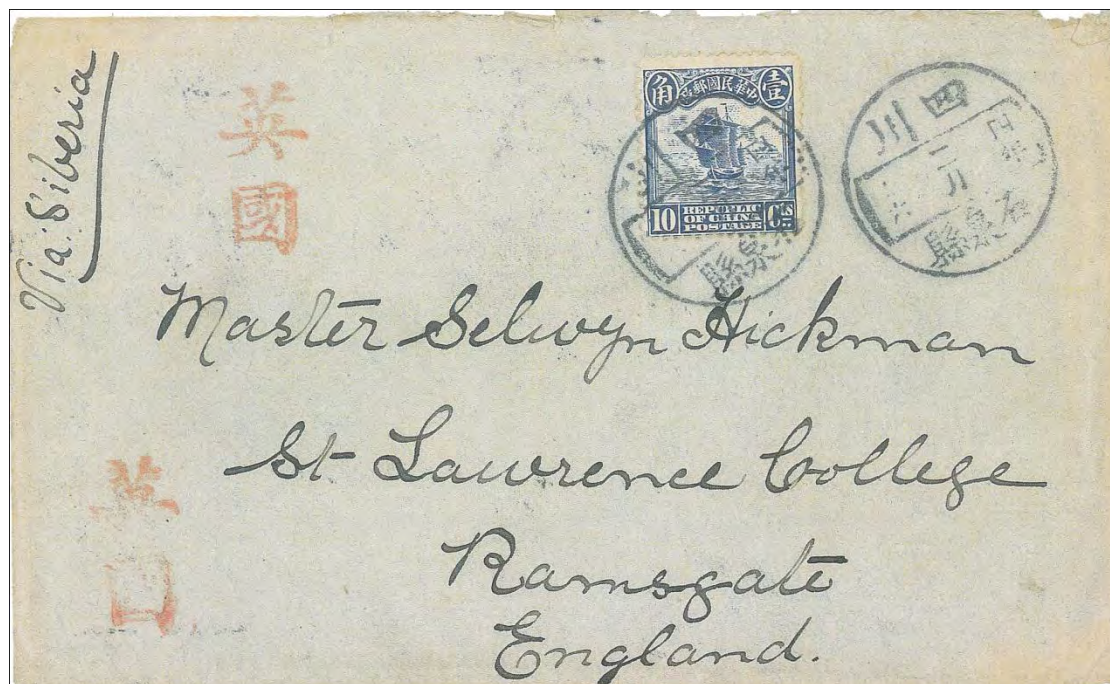 Via Siberia
英國
英國
中華民國郵政
壹角
REPUBLIC
OF CHINA
POSTAGE
10 Cts
四川
石泉縣
四川
石泉縣
Master Selwyn Hickman
St Lawrence College
Ramsgate
England.